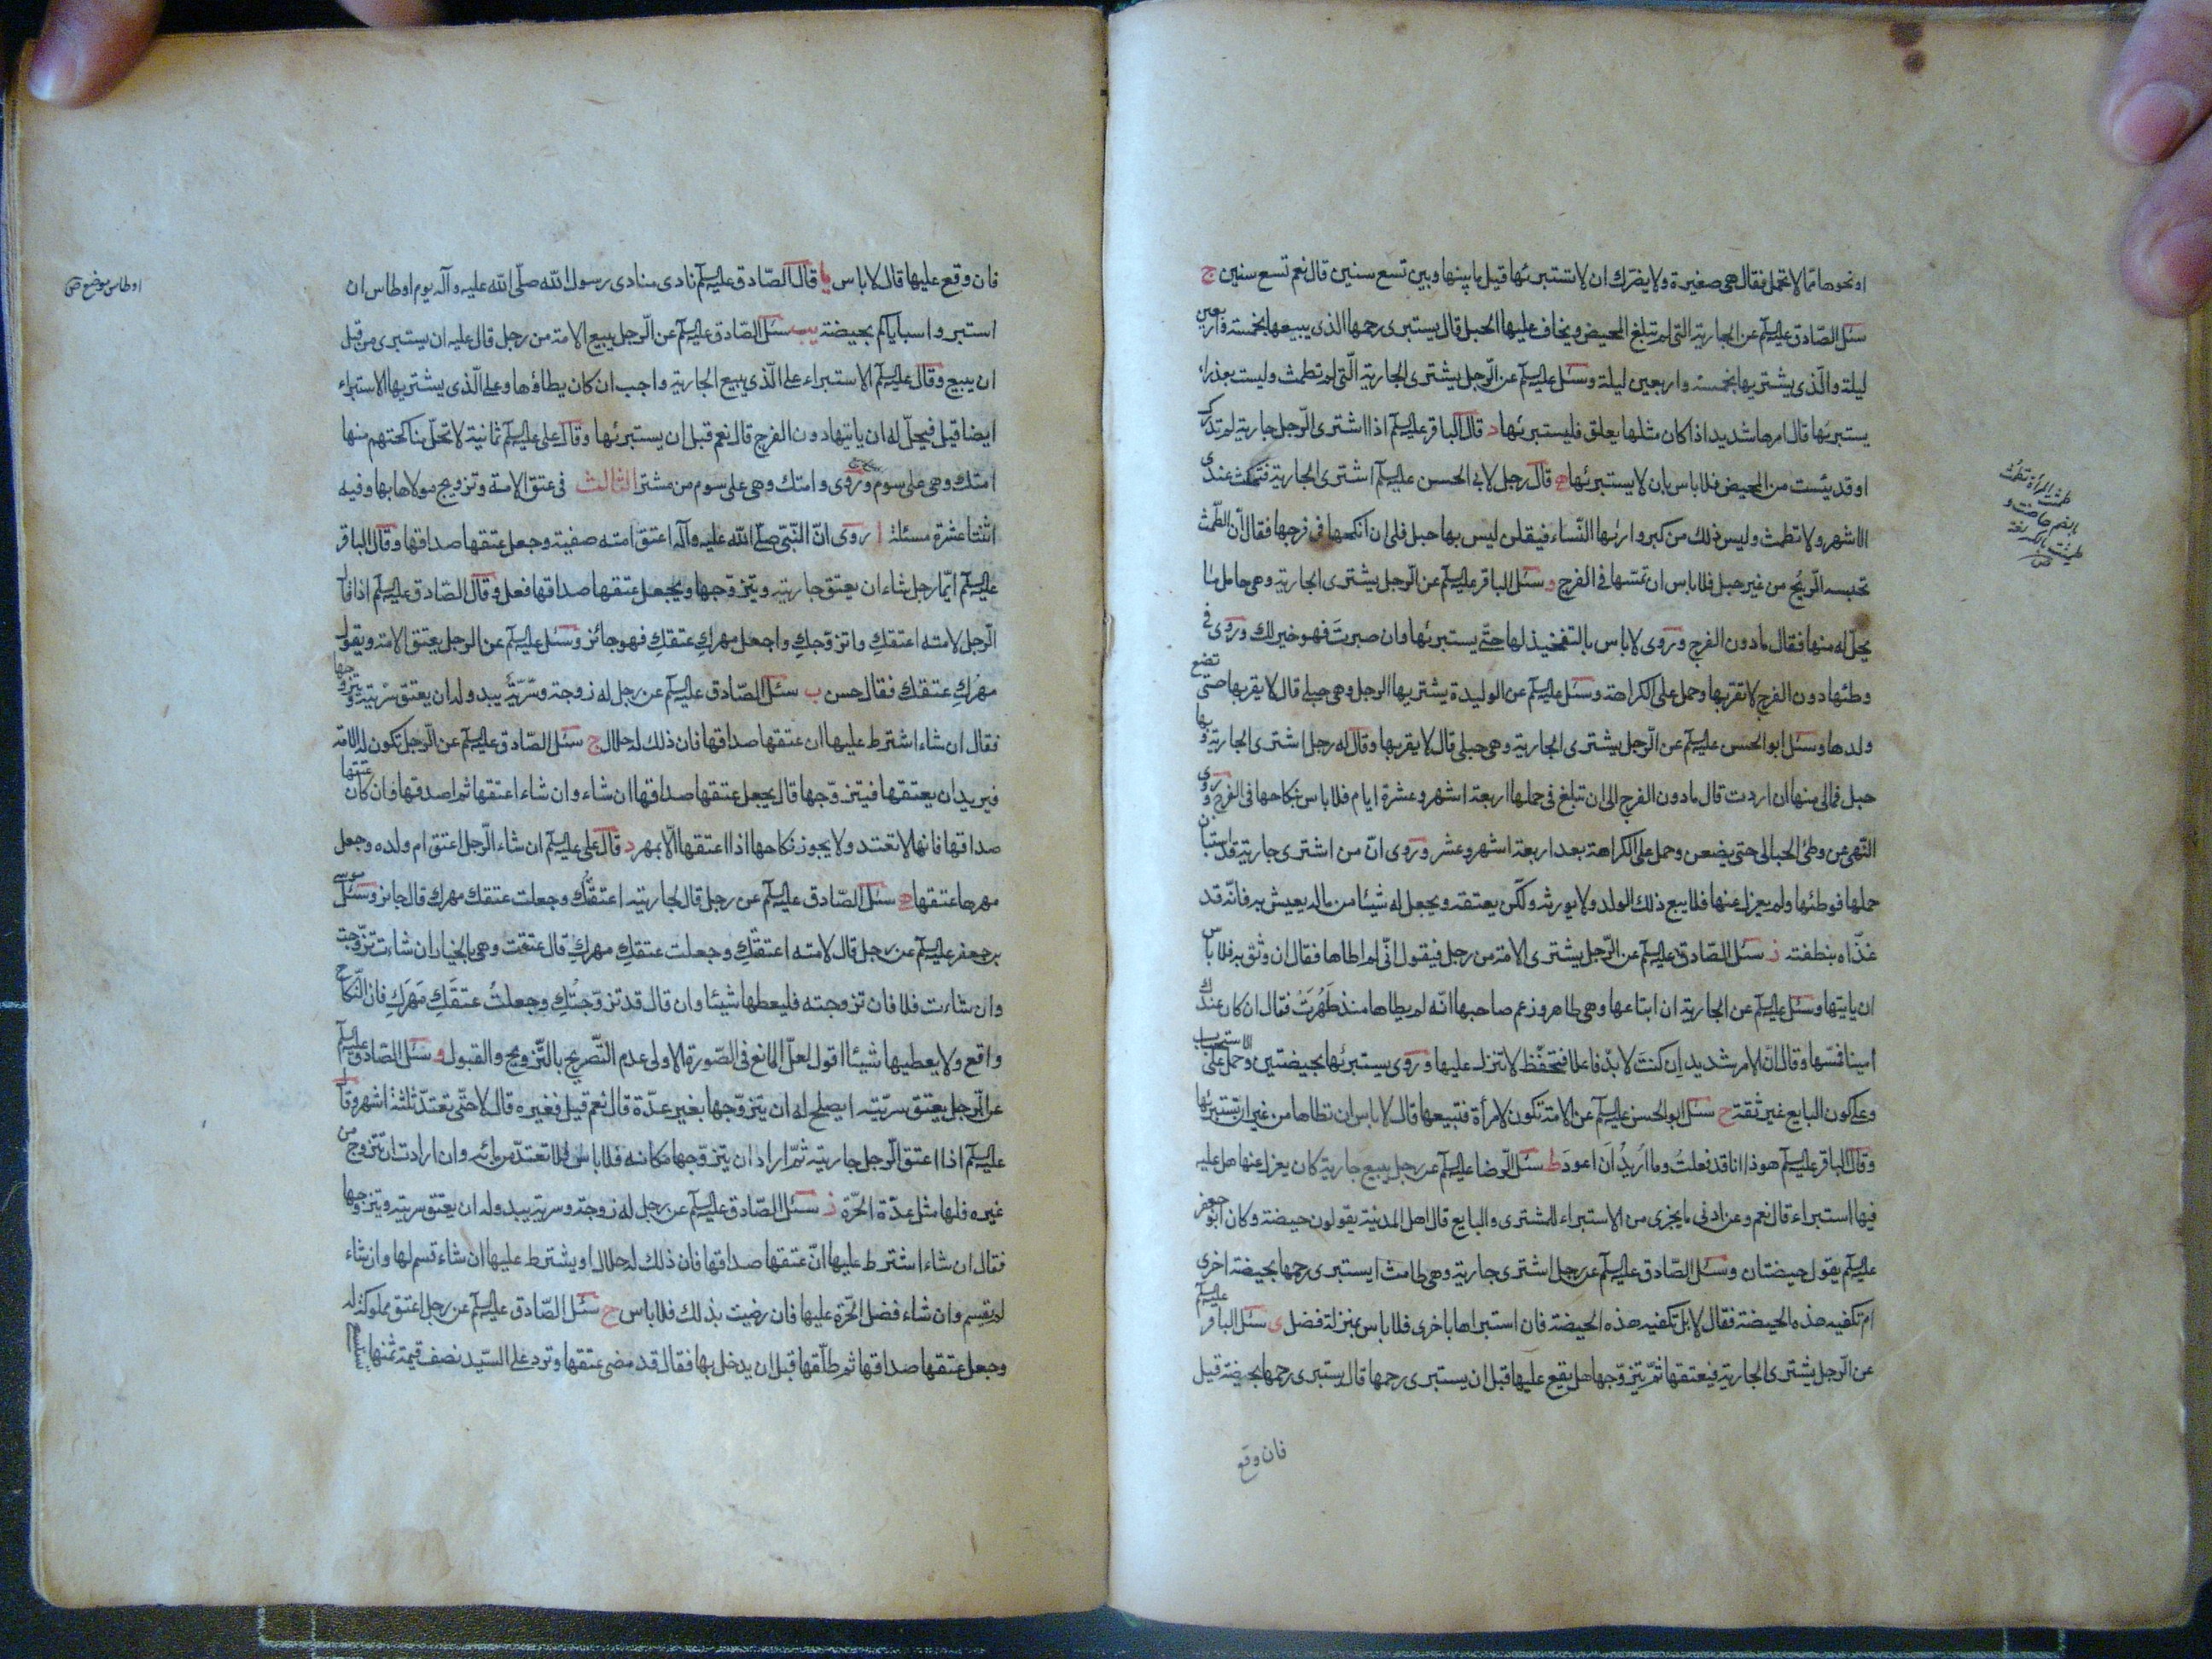 او نحوها مما لا تحمل فقال هى صغيرة ولا يضرك ان لا تستبرئها قيل ما بينها وبين تسع سنين قال نعم تسع سنين ج
سئل الصادق عليه السلم عن الجارية التى لم تبلغ المحيض ويخاف عليها الحبل قال يستبرى رحمها الذى يبيعها بخمسة واربعين
ليلة والذى يشتريها بخمسة واربعين ليلة وسئل عليه السلم عن الرجل يشترى الجارية التى لم تطمث وليست بعذراء
يستبرئها قال امرها شديد اذا كان مثلها يعلق فليستبرئها د قال الباقر عليه السلم اذا اشترى الرجل جارية لم تدرك
او قد يئست من المحيض فلا باس بان لا يستبرئها ه قال رجل لابى الحسن عليه السلم اشترى الجارية فتمكث عندى
الاشهر ولا تطمث وليس ذلك من كبر وارئها النساء فيقلن ليس بها حبل فلى ان انكحها فى فرجها فقال ان الطمث
تحبسه الريح من غير حبل فلا باس ان تمسها فى الفرج و سئل الباقر عليه السلم عن الرجل يشترى الجارية وهى حامل ما
يحل له منها فقال ما دون الفرج وروى لا باس بالتفخيذ لها حتى يستبرئها وان صبرت فهو خير لك وروى فى
وطئها دون الفرج لا تقربها وحمل على الكراهة وسئل عليه السلم عن الوليدة يشتريها الرجل وهى حبلى قال لا يقربها حتى تضع
ولدها وسئل ابو الحسن عليه السلم عن الرجل يشترى الجارية وهى حبلى قال لا يقربها وقال له رجل اشترى الجارية وبها
حبل فمالى منها ان اردت قال ما دون الفرج الى ان تبلغ فى حملها اربعة اشهر وعشرة ايام فلا باس بنكاحها فى الفرج وروى
النهى عن وطئ الحبالى حتى يضعن وحمل على الكراهة بعد اربعة اشهر وعشر وروى ان من اشترى جارية قد استبان
حملها فوطئها ولم يعزل عنها فلا يبع ذلك الولد ولا يورثه ولكن يعتقه ويجعل له شيئا من ماله يعيش به فانه قد
غذاه بنطفته ز سئل الصادق عليه السلم عن الرجل يشترى الامة من رجل فيقول انى لم اطاها فقال ان وثق به فلا باس
ان ياتيها وسئل عليه السلم عن الجارية ان ابتاعها وهى طاهر وزعم صاحبها انه لم يطاها منذ طهرت فقال ان كان عندك
امينا فمسها وقال ان الامر شديد ان كنت لا بد فاعلا فتحفظ لا تنزل عليها وروى يستبرئها بحيضتين وحمل على الاستحباب
وعلى كون البايع غير ثقة ح سئل ابو الحسن عليه السلم عن الامة تكون لامرأة فتبيعها قال لا باس ان تطاها من غير ان تستبرئها
وقال الباقر عليه السلم هوذا انا قد فعلت وما اريد ان اعود ط سئل الرضا عليه السلم عن رجل يبيع جارية كان يعزل عنها هل عليه
فيها استبراء قال نعم وعن ادنى ما يجزى من الاستبراء للمشترى والبايع قال اهل المدينة يقولون حيضة وكان ابو جعفر
عليه السلم يقول حيضتان وسئل الصادق عليه السلم عن رجل اشترى جارية وهى طامث ايستبرى رحمها بحيضة اخرى
ام تكفيه هذه الحيضة فقال لا بل تكفيه هذه الحيضة فان استبراها باخرى فلا باس بمنزلة فضل ى سئل الباقر عليه السلم
عن الرجل يشترى الجارية فيعتقها ثم يتزوجها هل يقع عليها قبل ان يستبرى رحمها قال يستبرى رحمها بحيضة قيل
فان وقع
فان وقع عليها قال لا باس يا قال الصادق عليه السلم نادى منادى رسول الله صلى الله عليه وآله يوم اوطاس ان
اوطاس موضع
استبروا سباياكم بحيضة يب سئل الصادق عليه السلم عن الرجل يبيع الامة من رجل قال عليه ان يستبرى من قبل
ان يبيع وقال عليه السلم الاستبراء على الذى يبيع الجارية واجب ان كان يطاؤها وعلى الذى يشتريها الاستبراء
ايضا قيل فيحل له ان ياتيها دون الفرج قال نعم قبل ان يستبرئها وقال على عليه السلم ثمانية لا تحل مناكحتهم منها
امتك وهى على سوم وروى وامتك وهى على سوم من مشتر الثالث فى عتق الامة وتزويج مولاها بها وفيه
اثنتا عشرة مسئلة ا روى ان النبى صلى الله عليه وآله اعتق امته صفية وجعل عتقها صداقها وقال الباقر
عليه السلم ايما رجل شاء ان يعتق جارية ويتزوجها ويجعل عتقها صداقها فعل وقال الصادق عليه السلم اذا قال
الرجل لامته اعتقك واتزوجك واجعل مهرك عتقك فهو جائز وسئل عليه السلم عن الرجل يعتق الامة ويقول
مهرك عتقك فقال حسن ب سئل الصادق عليه السلم عن رجل له زوجة وسرية يبدو له ان يعتق سريته ويتزوجها
فقال ان شاء اشترط عليها ان عتقها صداقها فان ذلك له حلال ج سئل الصادق عليه السلم عن الرجل تكون له الامة
فيريد ان يعتقها فيتزوجها قال يجعل عتقها صداقها ان شاء وان شاء اعتقها ثم اصدقها وان كان عتقها
صداقها فانها لا تعتد ولا يجوز نكاحها اذا اعتقها الا بمهر د قال على عليه السلم ان شاء الرجل اعتق ام ولده وجعل
مهرها عتقها ه سئل الصادق عليه السلم عن رجل قال لجاريته اعتقتك وجعلت عتقك مهرك قال جائز وسئل موسى
بن جعفر عليه السلم عن رجل قال لامته اعتقتك وجعلت عتقك مهرك قال عتقت وهى بالخيار ان شاءت تزوجت
وان شاءت فلا فان تزوجته فليعطها شيئا وان قال قد تزوجتك وجعلت عتقك مهرك فان النكاح
واقع ولا يعطيها شيئا اقول لعل المانع فى الصورة الاولى عدم التصريح بالتزويج والقبول و سئل الصادق عليه السلم
عن الرجل يعتق سريته ايصلح له ان يتزوجها بغير عدة قال نعم قيل فغيره قال لا حتى تعتد ثلثة اشهر وقال
عليه السلم اذا اعتق الرجل جاريته ثم اراد ان يتزوجها مكانه فلا باس فلا تعتد من مائه وان ارادت ان تتزوج من
غيره فلها مثل عدة الحرة ز سئل الصادق عليه السلم عن رجل له زوجة وسرية يبدو له ان يعتق سريته ويتزوجها
فقال ان شاء اشترط عليها ان عتقها صداقها فان ذلك له حلال او يشترط عليها ان شاء قسم لها وان شاء
لم يقسم وان شاء فضل الحرة عليها فان رضيت بذلك فلا باس ح سئل الصادق عليه السلم عن رجل اعتق مملوكة له
وجعل عتقها صداقها ثم طلقها قبل ان يدخل بها فقال قد مضى عتقها وترد على السيد نصف قيمة ثمنها